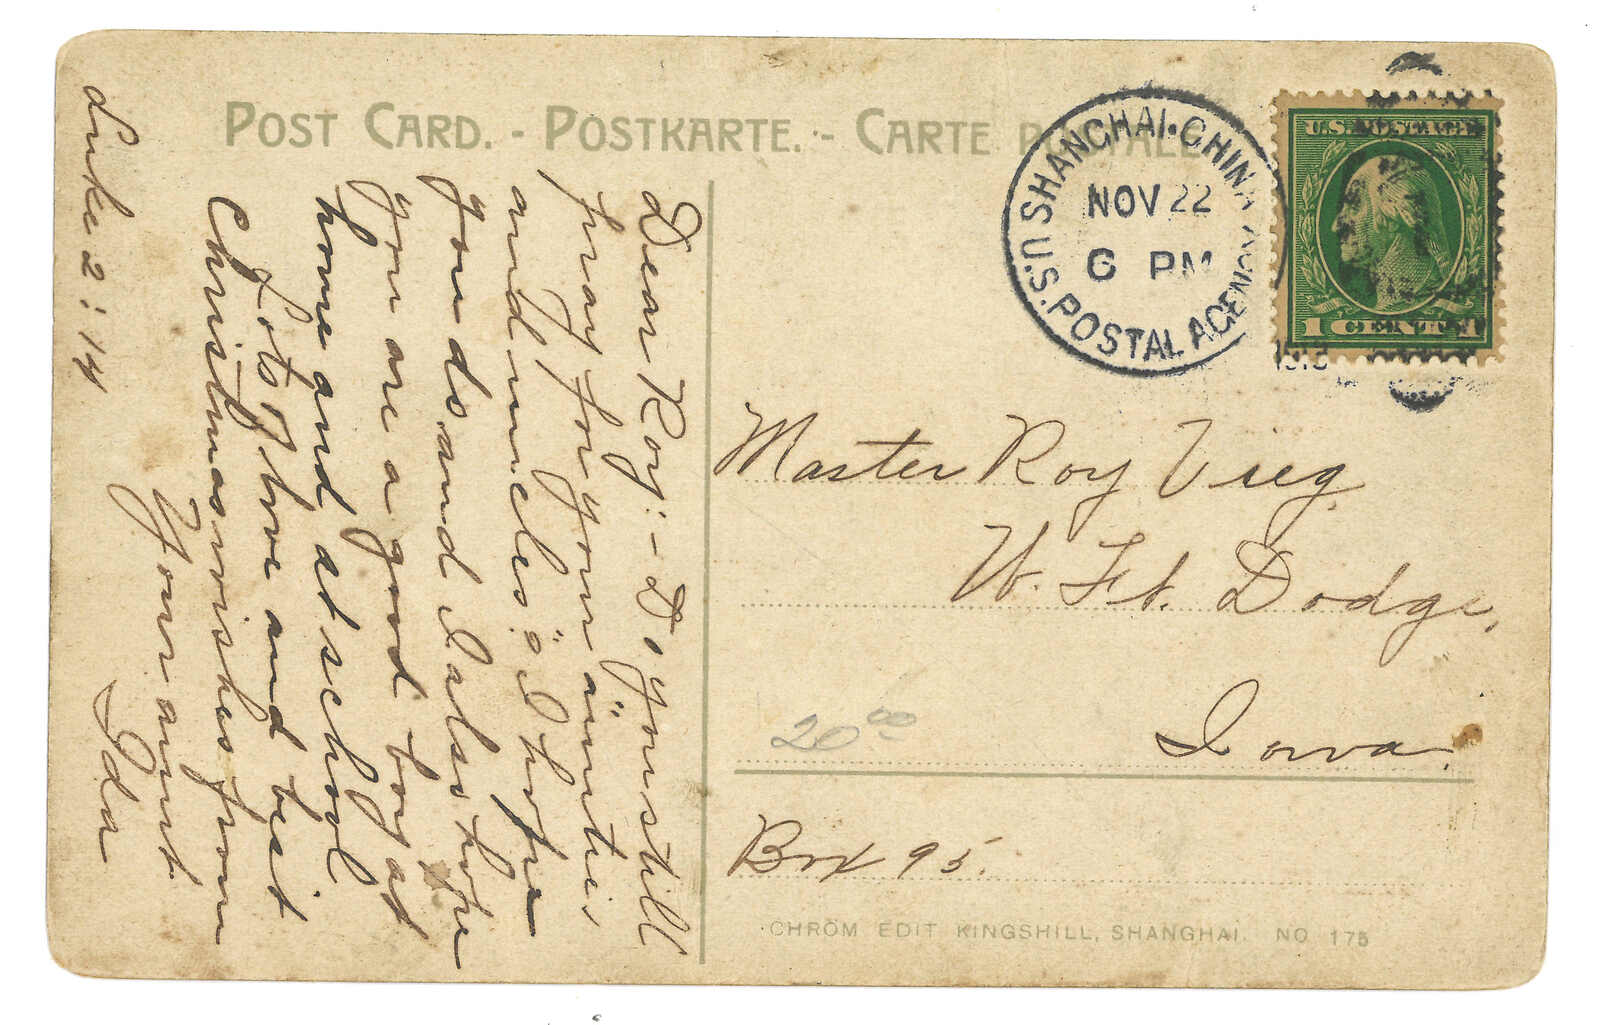 POST CARD. - POSTKARTE. - CARTE POSTALE.
U.S. POSTAL AGENCY SHANGHAI·CHINA
NOV 22
6 PM
1913
U.S. POSTAGE
1 CENT 1
Luke 2:14
Dear Roy:- Do you still
pray for your aunties
and uncles? I hope
you do and I also hope
you are a good boy at
home and at school
Lots of love and best
Christmas wishes from
Your aunt
Ida
Master Roy Vieg
W. Ft. Dodge,
Iowa.
Box 95.
20 00
CHROM EDIT KINGSHILL, SHANGHAI. NO 175